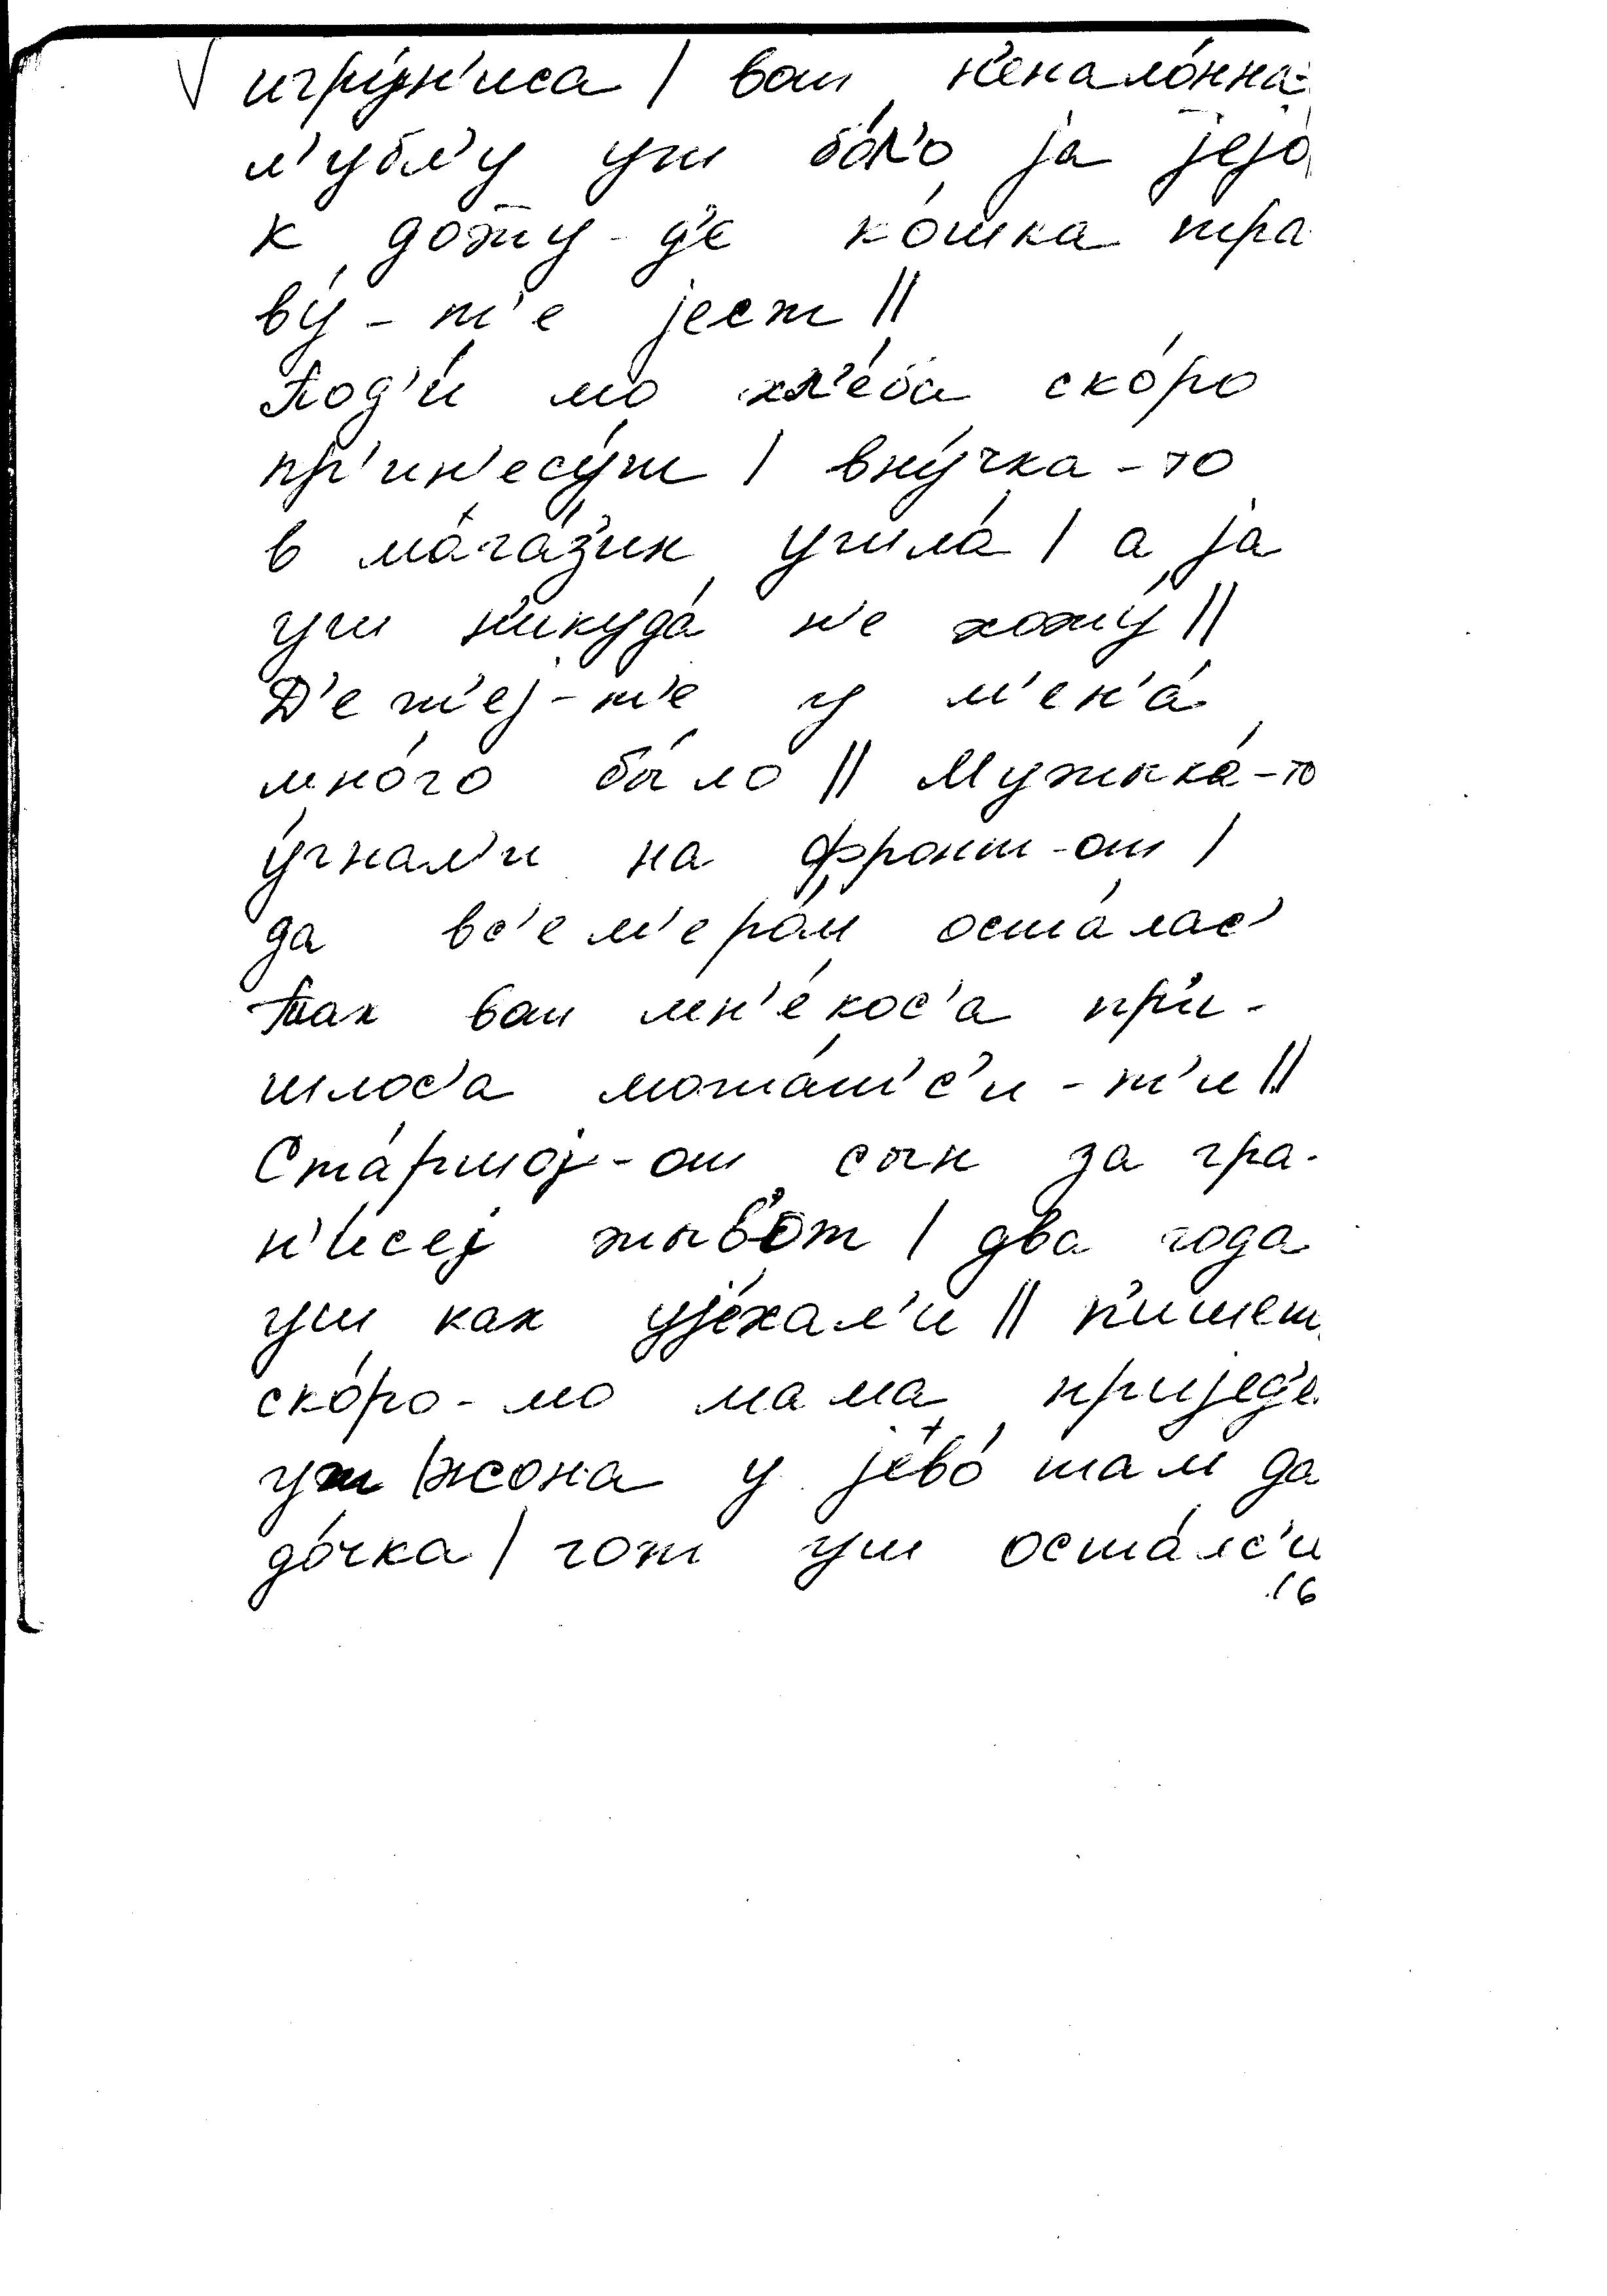 √ игру́н'иса | вот н'енало́нна-
л'убл'у уш бо́л'о ја јејо́
к дожжу́-д'е ко́шка тра
ву́-т'е јест ||
Под'и́ мо хл'е́ба ско́ро
пр'ин'есу́т | вну́чка-то
в магаз'и́н ушла́ | а ја
уш н'икуда́ н'е хожу́ ||
Д'ет'еј-т'е у м'ен'а́
мно́го бы́ло || Мужыка́-то
угнал'и на фронт-от |
да вс'ем'еро́м оста́лас'
так вот мн'е́кос'а пр'и-
шлос'а мота́т'с'и-т'и ||
Ста́ршој-от сын за гра-
н'и́сеј жыв'о́т | два года
уш как ује́хал'и || п'ишет
ско́ро-мо мама пријед'е
уш | жона у јево́ там да
до́чка | гот уш оста́лс'и
16